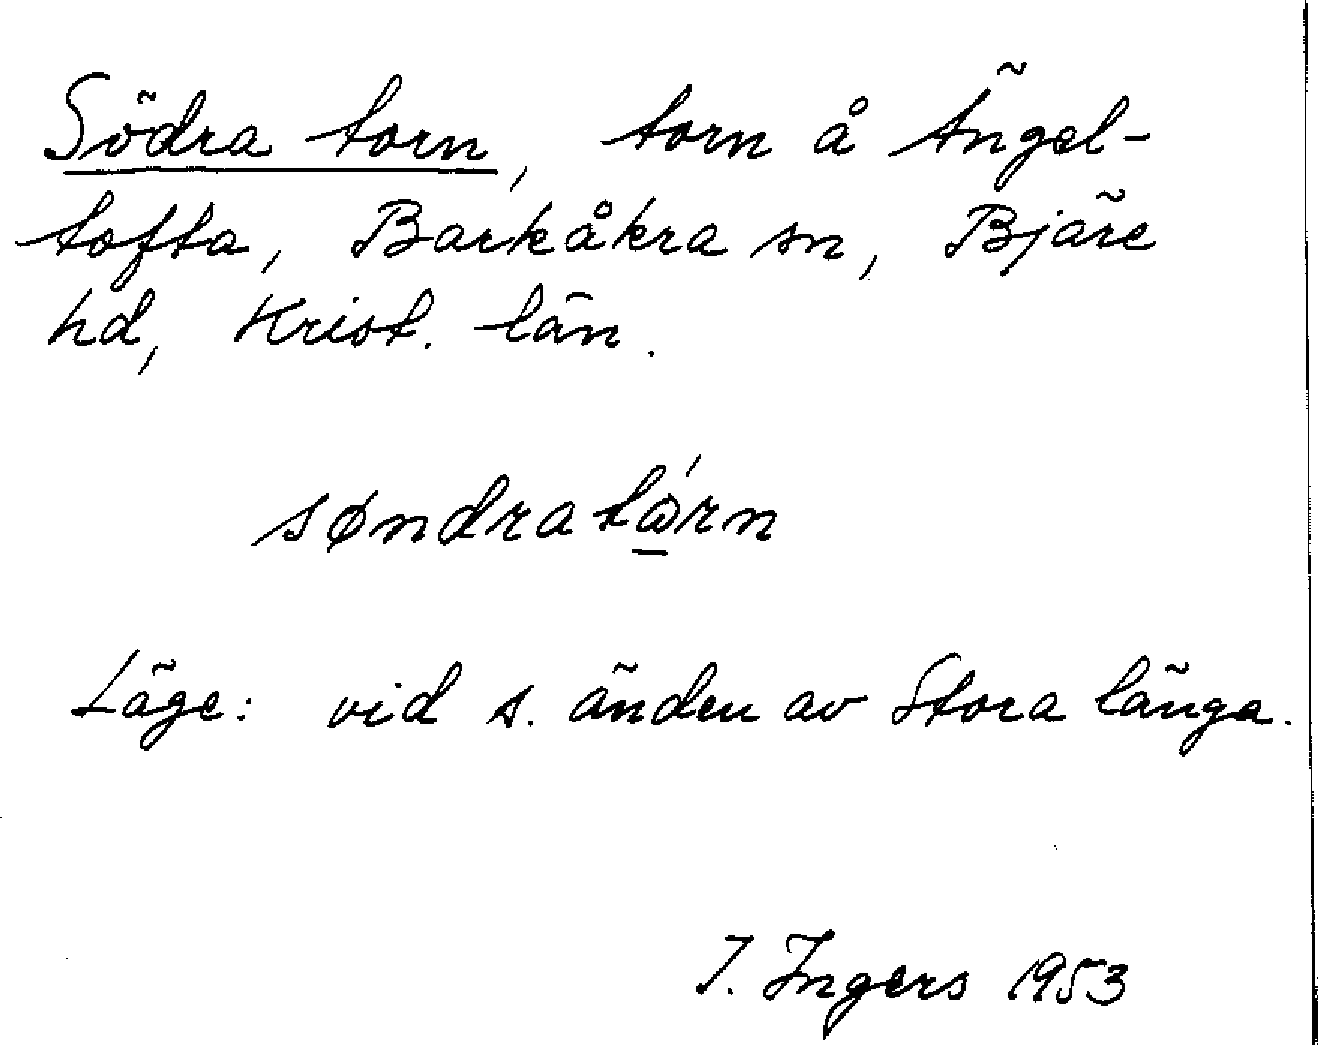 Södra torn, torn å Ängel-
tofta, Barkåkra sn, Bjäre
hd, Krist. län.
søndratώ̲rn
Läge: vid s. änden av Stora länga.
I. Ingers 1953